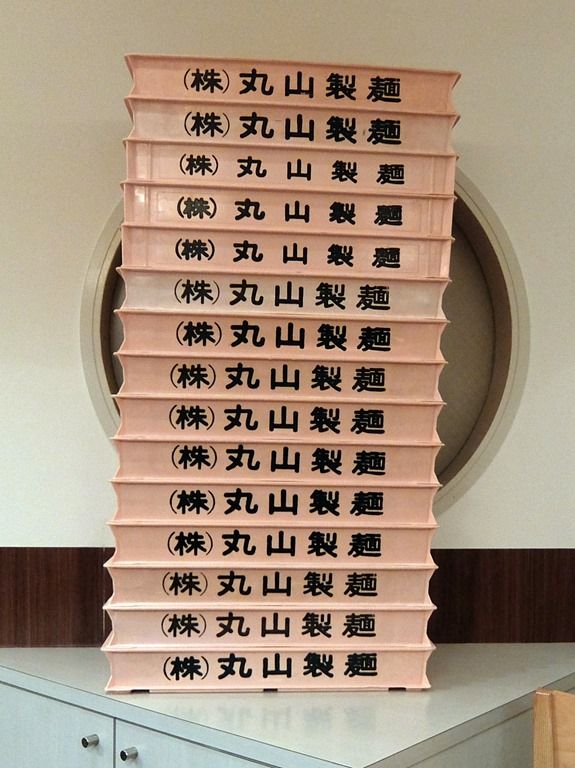 (株)丸山製麺
(株)丸山製麺
(株)丸山製麺
(株)丸山製麺
(株)丸山製麺
(株)丸山製麺
(株)丸山製麺
(株)丸山製麺
(株)丸山製麺
(株)丸山製麺
(株)丸山製麺
(株)丸山製麺
(株)丸山製麺
(株)丸山製麺
(株)丸山製麺